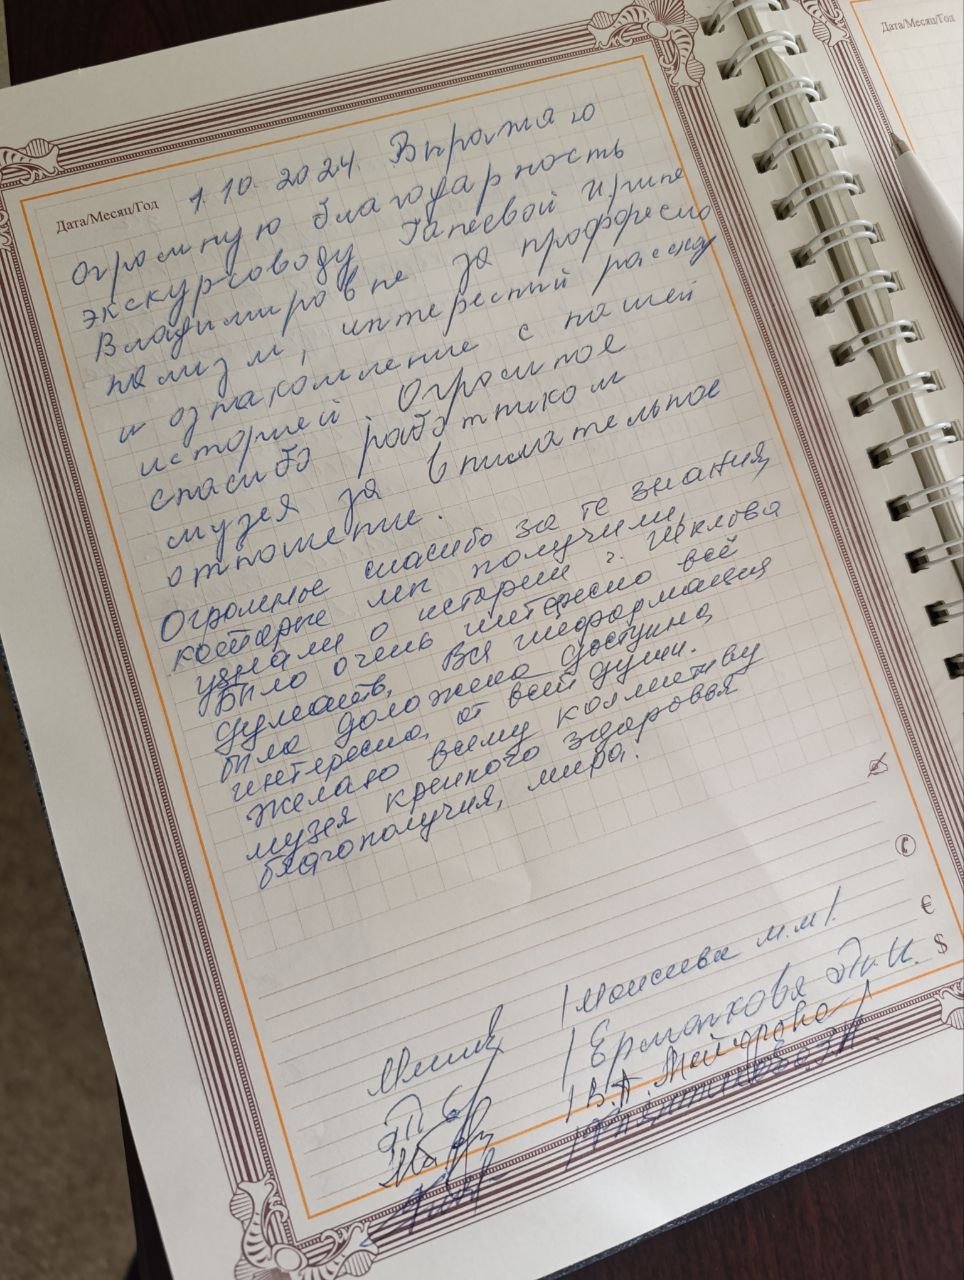 Дата/Месяц/Год
Дата/Месяц/Год 1.10.2024 Выражаю
огромную благодарность
экскурсоводу Гапеевой Ирине
Владимировне за профессио
нализм, интересный рассказ
и ознакомление с нашей
историей. Огромное
спасибо работником
музея за внимательное
отношение.
Огромное спасибо за те знания,
которые мы получили,
узнали о истории г. Шклова
Было очень интересно всё
думаю, Вся информация
была доложена доступно,
интересно, от всей души.
Желаю всему коллективу
музея крепкого здоровья
благополучия, мира.
/Моисеева М.М/.
/Ермачкова
/В.А. Майорова/
€
$